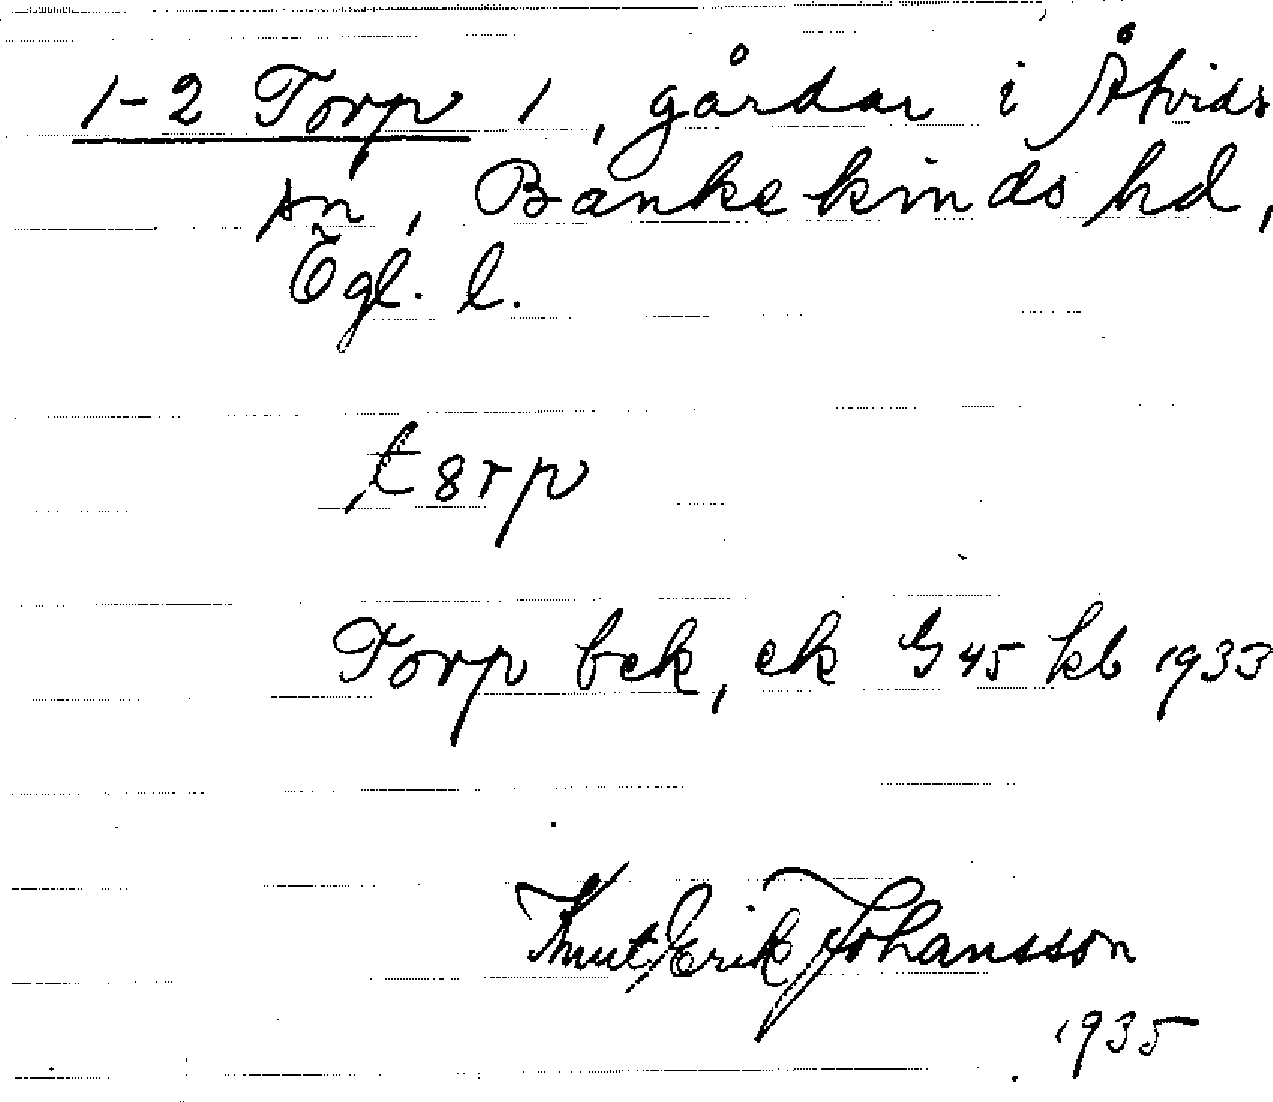 1-2 Torp 1, gårdar i Åtvids
sn, Bankekinds hd,
Ögl. l.
t8rp
Torp bek, ek G 45 kb 1933
Knut Erik Johansson
1935